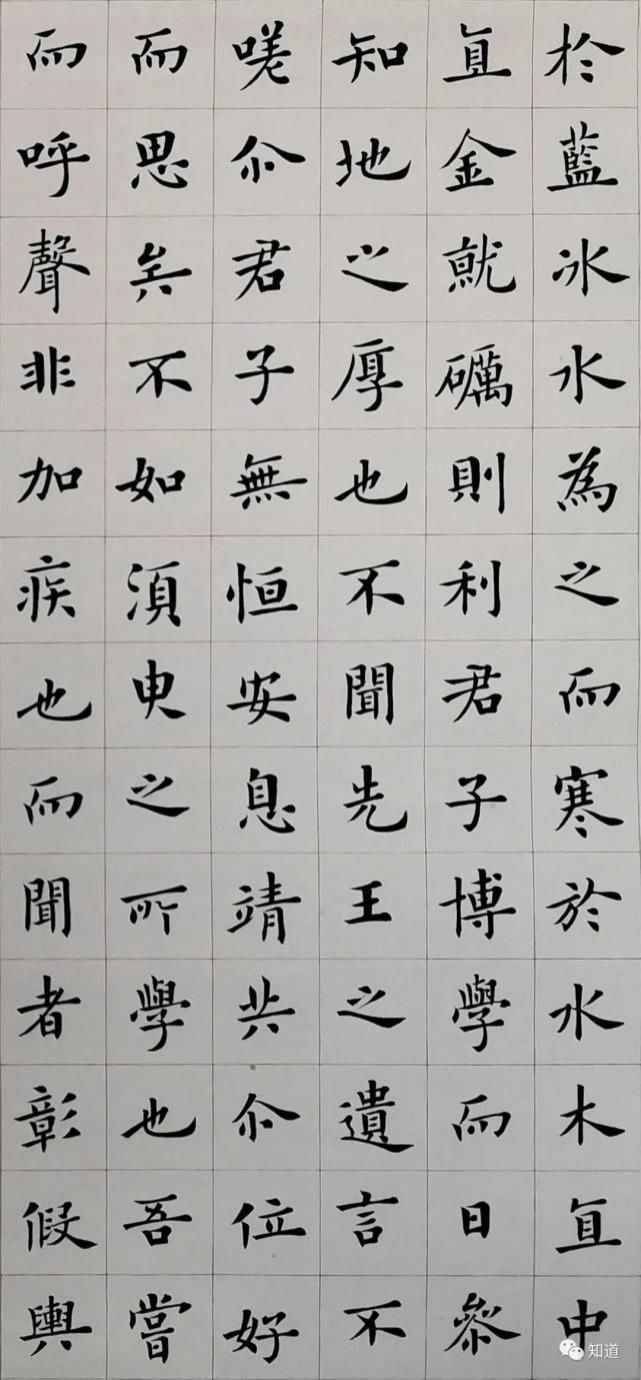 於藍冰水為之而寒於水木直中
直金就礪則利君子博學而日參
知地之厚也不聞先王之遺言不
嗟尒君子無恒安息靖共尒位好
而思矣不如須臾之所學也吾嘗
而呼聲非加疾也而聞者彰假輿
知道